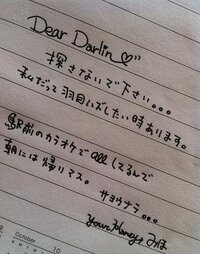 Dear Darlin♡
探さないで下さい。。。
私だって羽目ハズしたい時あります。
駅前のカラオケでallしてるんで
朝には帰りマス。
サヨウナラ。。。
Your Honey, みほ
October
10